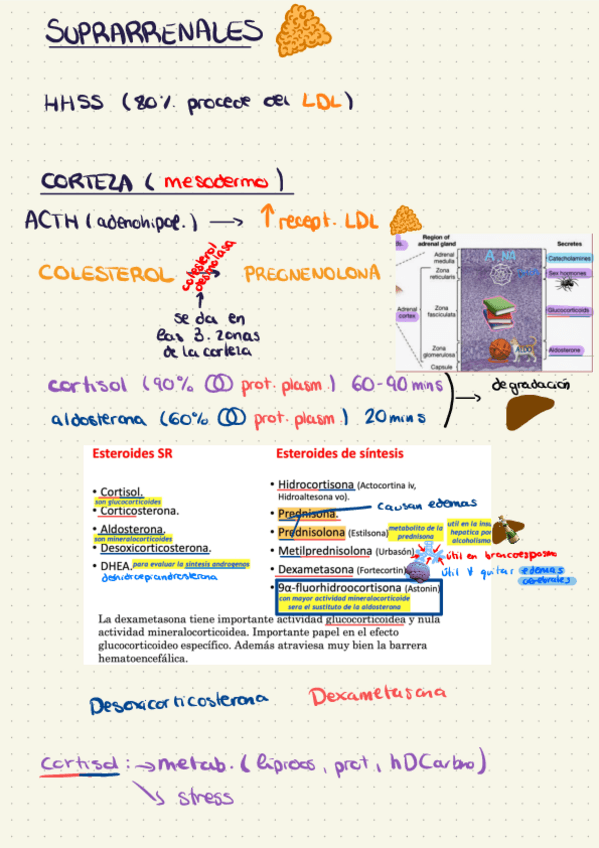 SUPRARRENALES
HHSS (80% procede del LDL)
CORTEZA (mesodermo)
ACTH (adenohipof.) → ↑ recept. LDL
COLESTEROL colesterol desmolasa → PREGNENOLONA
se da en
las 3 zonas
de la corteza
Region of
adrenal gland
Secretes
Adrenal
medulla
A, NA
Catecholamines
Zona
reticularis
Sex hormones
Adrenal
cortex
Zona
fasciculata
Glucocorticoids
Zona
glomerulosa
ALDO
Aldosterone
Capsule
cortisol (90% prot. plasm.) 60-90 mins
aldosterona (60% prot. plasm.) 20 mins
→ degradación
Esteroides SR
• Cortisol.
son glucocorticoides
• Corticosterona.
• Aldosterona.
son mineralocorticoides
• Desoxicorticosterona.
• DHEA. para evaluar la síntesis androgenos
dehidroepiandrosterona
Esteroides de síntesis
• Hidrocortisona (Actocortina iv,
Hidroaltesona vo).
causan edemas
• Prednisona.
• Prednisolona (Estilsona) metabolito de la
prednisona
util en la insu.
hepatica por
alcoholismo
• Metilprednisolona (Urbasón) útil en broncoespasmo
• Dexametasona (Fortecortin) útil quitar edemas
cerebrales
• 9α-fluorhidroocortisona (Astonin)
con mayor actividad mineralocorticoide
sera el sustituto de la aldosterona
La dexametasona tiene importante actividad glucocorticoidea y nula
actividad mineralocorticoidea. Importante papel en el efecto
glucocorticoideo específico. Además atraviesa muy bien la barrera
hematoencefálica.
Desoxicorticosterona Dexametasona
cortisol: → metab. (lípidos, prot, hDCarbno)
↘ stress